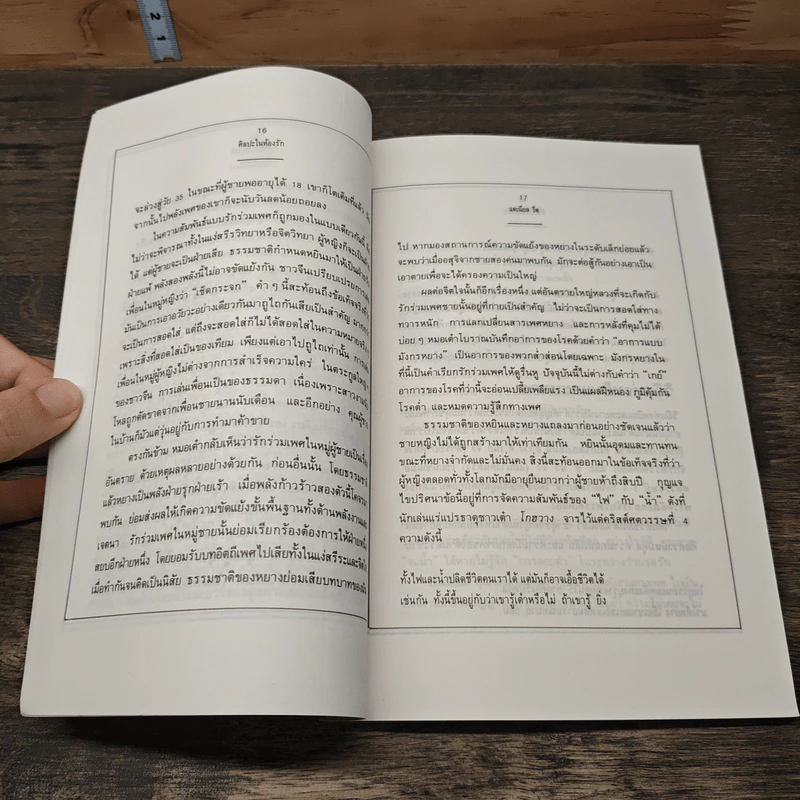 2
1
16
ศิลปะในห้องรัก
จะล่วงสู่วัย 35 ในขณะที่ผู้ชายพออายุได้ 18 เขาก็โตเต็มที่แล้ว
จากนั้นไปพลังเพศของเขาก็จะนับวันลดน้อยถอยลง
ในความสัมพันธ์แบบรักร่วมเพศก็ถูกมองในแบบเดียวกันนี้
ไม่ว่าจะพิจารณาทั้งในแง่สรีรวิทยาหรือจิตวิทยา ผู้หญิงก็จะเป็น
ได้ แต่ผู้ชายจะเป็นฝ่ายเสีย ธรรมชาติกำหนดหยินมาให้เป็นฝ่าย
ฝ่ายแพ้ พลังสองพลังนี้ไม่อาจขัดแย้งกัน ชาวจีนเปรียบเปรยการ
เพื่อนในหมู่หญิงว่า "เช็ดกระจก" คำ ๆ นี้สะท้อนถึงข้อเท็จจริง
มันเป็นการเอาอวัยวะอย่างเดียวกันมาถูไถกันเสียเป็นสำคัญ
จะเป็นการสอดใส่ แต่ถึงจะสอดใส่ก็ไม่ได้สอดใส่ในความหมาย
เพราะสิ่งที่สอดใส่เป็นของเทียม เพียงแต่เอาไปถูไถเท่านั้น การ
เพื่อนในหมู่ผู้หญิงไม่ต่างจากการสำเร็จความใคร่ ในตระกูล
ของชาวจีน การเล่นเพื่อนเป็นของธรรมดา เนื่องเพราะสาว
ไหลถูกตัดขาดจากเพื่อนชายนานนับเดือน และอีกอย่าง
ในบ้านก็มัวแต่วุ่นอยู่กับการทำมาค้าขาย
ตรงกันข้าม หมอเต๋ากลับเห็นว่ารักร่วมเพศในหมู่ผู้ชายเป็น
อันตราย ด้วยเหตุผลหลายอย่างด้วยกัน ก่อนอื่นนั้น โดยธรรมชาติ
แล้วหยางเป็นพลังฝ่ายรุกฝ่ายเร้า เมื่อพลังก้าวร้าวสองตัวนี้
พบกัน ย่อมส่งผลให้เกิดความขัดแย้งขั้นพื้นฐานทั้งด้านพลังงาน
เจตนา รักร่วมเพศในหมู่ชายนั้นย่อมเรียกร้องต้องการให้ฝ่าย
สยบอีกฝ่ายหนึ่ง โดยยอมรับบทอิตถีเพศไปเสียทั้งในแง่สรีระและ
เมื่อทำกันจนติดเป็นนิสัย ธรรมชาติของหยางย่อมเสียบทบาทของ
17
แดเนียล รีด
ไป หากมองสถานการณ์ความขัดแย้งของหยางในระดับเล็กย่อยแล้ว
จะพบว่าเมื่ออสุจิจากชายสองคนมาพบกัน มักจะต่อสู้กันอย่างเอาเป็น
เอาตายเพื่อจะได้ครองความเป็นใหญ่
ผลต่อจิตใจนั้นก็อีกเรื่องหนึ่ง แต่อันตรายใหญ่หลวงที่จะเกิดกับ
รักร่วมเพศชายนั้นอยู่ที่กายเป็นสำคัญ ไม่ว่าจะเป็นการสอดใส่ทาง
ทวารหนัก การแลกเปลี่ยนสารเพศหยาง และการหลั่งที่คุมไม่ได้
บ่อย ๆ หมอเต๋าโบราณบันทึกอาการของโรคด้วยคำว่า "อาการแบบ
มังกรหยาง" เป็นอาการของพวกล่ำส่อนโดยเฉพาะ มังกรหยางใน
ที่นี้เป็นคำเรียกรักร่วมเพศให้ดูรื่นหู ปัจจุบันนี้ไม่ต่างกับคำว่า "เกย์"
อาการของโรคที่ว่านี้จะอ่อนเปลี้ยเพลียแรง เป็นแผลฝีหนอง ภูมิคุ้มกัน
โรคต่ำ และหมดความรู้สึกทางเพศ
ธรรมชาติของหยินและหยางแถลงมาก่อนอย่างชัดเจนแล้วว่า
ชายหญิงไม่ได้ถูกสร้างมาให้เท่าเทียมกัน หยินนั้นอุดมและทานทน
ขณะที่หยางจำกัดและไม่มั่นคง สิ่งนี้สะท้อนออกมาในข้อเท็จจริงที่ว่า
ผู้หญิงตลอดทั่วทั้งโลกมักมีอายุยืนยาวกว่าผู้ชายห้าถึงสิบปี กุญแจ
ไขปริศนาข้อนี้อยู่ที่การจัดความสัมพันธ์ของ "ไฟ" กับ "น้ำ" ดังที่
นักเล่นแร่แปรธาตุชาวเต๋า โกฮวาง จารไว้แต่คริสต์ศตวรรษที่ 4
ความดังนี้
ทั้งไฟและน้ำปลิดชีวิตคนเราได้ แต่มันก็อาจเอื้อชีวิตได้
เช่นกัน ทั้งนี้ขึ้นอยู่กับว่าเขารู้เต๋าหรือไม่ ถ้าเขารู้ ยิ่ง